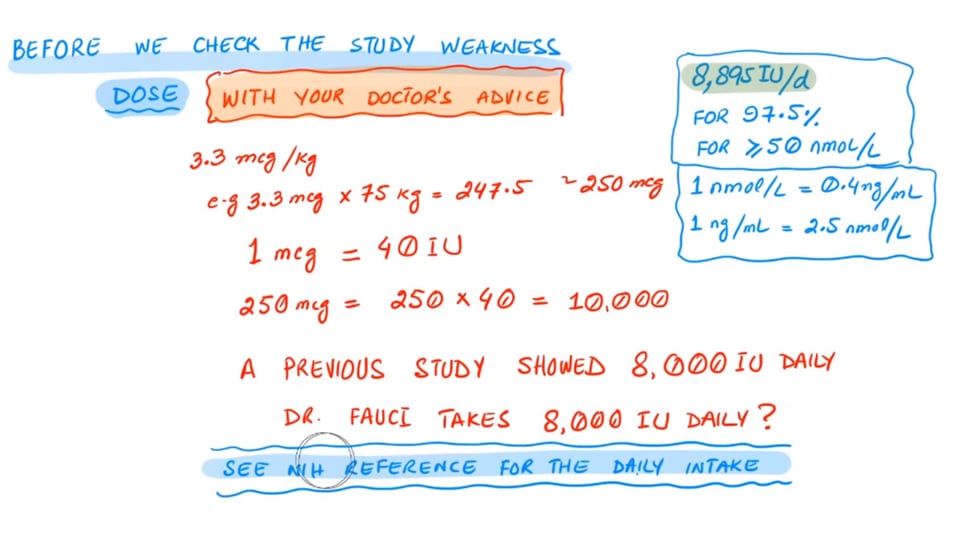 BEFORE WE CHECK THE STUDY WEAKNESS
DOSE WITH YOUR DOCTOR'S ADVICE
3.3 mcg/kg
e.g 3.3 mcg × 75 kg = 247.5 ~250 mcg
1 mcg = 40 IU
250 mcg = 250 × 40 = 10,000
A PREVIOUS STUDY SHOWED 8,000 IU DAILY
DR. FAUCI TAKES 8,000 IU DAILY?
SEE NIH REFERENCE FOR THE DAILY INTAKE
8,895 IU/d
FOR 97.5%
FOR ⩾50 nmoL/L
1 nmol/L = 0.4ng/mL
1 ng/mL = 2.5 nmol/L